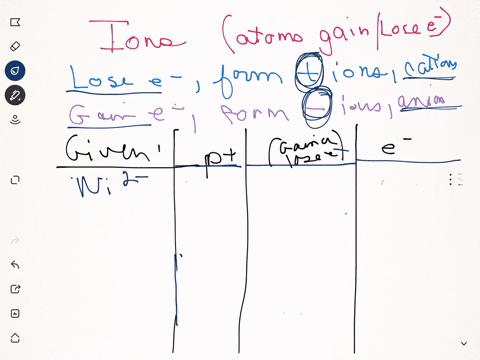 Ions (atoms gain/Lose e-)
Lose e-, form + ions, cations
Gain e-, form - ions, anion
Given: p+ (Gain/ lose e-) e-
Ni 2-